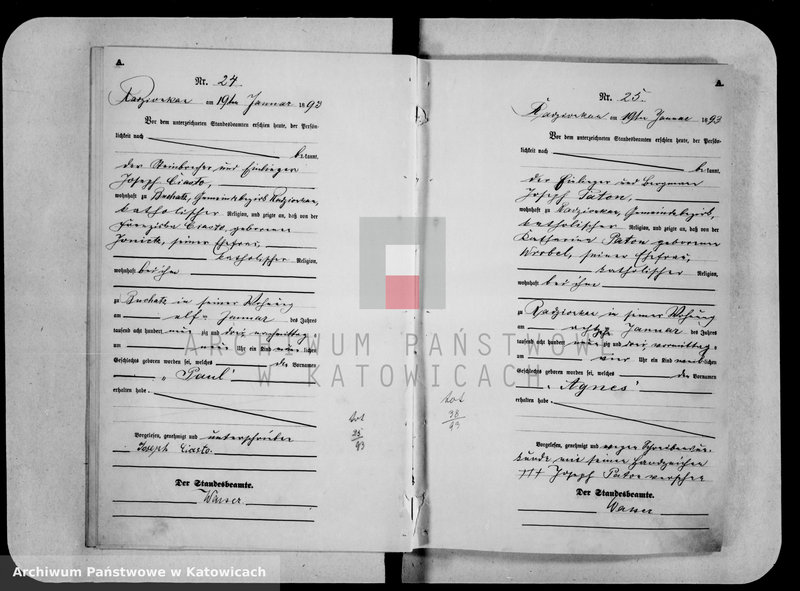 A.
Nr. 24.
am 19ten Januar 1893
Vor dem unterzeichneten Standesbeamten erschien heute, der Persön-
lichkeit nach
bekannt,
der Steinbrecher und Einlieger
Joseph Ciasto,
wohnhaft zu Buchatz, Gemeindebezirk
katholischer Religion, und zeigte an, daß von der
Franziska Ciasto, geborenen
seiner Ehefrau,
katholischer Religion,
wohnhaft bei ihm
zu Buchatz in seiner Wohnung
am elf Januar des Jahres
tausend acht hundert neunzig und drei
um Uhr ein Kind männlichen
Geschlechts geboren worden sei, welches den Vornamen
„Paul"
erhalten habe.
Vorgelesen, genehmigt und unterschrieben
Joseph Ciasto.
Der Standesbeamte.
tot
93
A.
Nr. 25.
am 19ten Januar 1893
Vor dem unterzeichneten Standesbeamten erschien heute, der Persön-
lichkeit nach
bekannt,
der Einlieger und Bergmann
Joseph Paton,
wohnhaft zu Gemeindebezirk,
katholischer Religion, und zeigte an, daß von der
Katharina Paton geborenen
Wrobel, seiner Ehefrau,
katholischer Religion,
wohnhaft bei ihm
zu in seiner Wohnung
am Januar des Jahres
tausend acht hundert neunzig und drei vormittags
um vier Uhr ein Kind weiblichen
Geschlechts geboren worden sei, welches den Vornamen
„Agnes"
erhalten habe.
Vorgelesen, genehmigt und wegen Schreibensun-
kunde mit seinem Handzeichen
+++ Joseph Paton versehen
Der Standesbeamte.
tot
38
93
ARCHIWUM PAŃSTWOWE
W KATOWICACH
Archiwum Państwowe w Katowicach